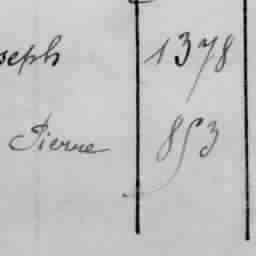 seph 1378
Pierre 853